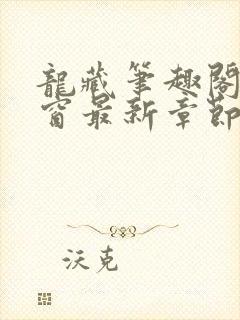 龍藏筆趣閣
窗最新章節
沃克